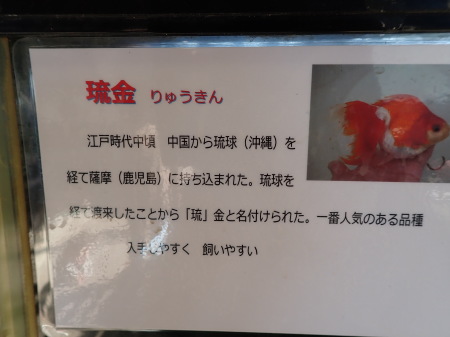 琉金 りゅうきん
江戸時代中頃 中国から琉球（沖縄）を
経て薩摩（鹿児島）に持ち込まれた。琉球を
経て渡来したことから「琉」金と名付けられた。一番人気のある品種
入手しやすく 飼いやすい